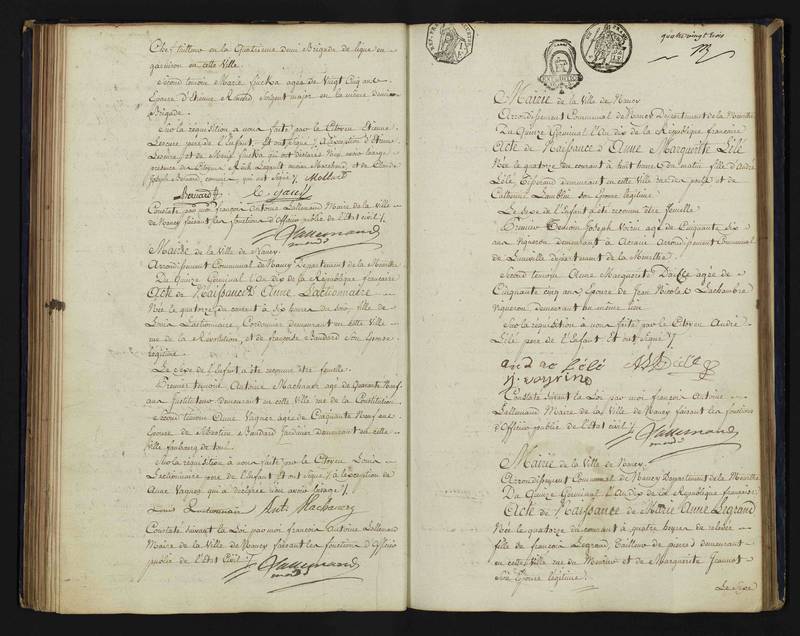 Chef tailleur en la Quatrieme demi Brigade de ligne en
garnison en cette Ville.
Second temoin Marie Sucka agée de Vingt Cinq ans
Epouse d'Etienne Renard Sergent major en la même demie
Brigade.
Sur la requisition a nous faite par le Citoyen Etienne
pere de l'Enfant. Et ont signé, a l'exception d'Etienne
et de Marie Sucka qui ont declarés
presence des Citoyens Marchand, et de Claude
Joseph Berard, commis qui ont signé / Mollard
Constaté, par moi françois Antoine Lallemand Maire de la Ville
de Nancy faisant les fonctions d'Officier public de l'Etat civil /.
Lallemand
Mairie de la Ville de Nancy
Arrondissement Communal de Nancy Departement de la Meurthe
Du Quinze Germinal l'An dix de la République française
Acte de Naissance D'Anne Lactionnaire
Née le quatorze du courant à Six heures du Soir, fille de
Louis Lactionnaire, Cordonnier demeurant en cette Ville
rue de la Révolution, et de françoise Baudard Son Epouse
légitime.
Le Sexe de l'Enfant a été reconnu être femelle.
Premier temoin Antoine Machaner agé de Quarante Neuf
ans Instituteur demeurant en cette ville rue de la Constitution.
Second temoin Anne Vagner agée de Cinquante Neuf ans
Epouse de Sébastien Baudard Jardinier demeurant en cette
Ville faubourg de
Sur la réquisition à nous faite par le Citoyen Louis
Lactionnaire pere de l'Enfant Et ont Signé / à l'exception de
Anne Vagner qui a declarée n'en avoir l'usage /.
Louis Lactionnaire Ant. Machaner
Constaté suivant la Loi par moi françois Antoine Lallemand
Maire de la Ville de Nancy faisant les fonctions d'Officier
public de l'Etat Civil /.
Lallemand
quatre vingt trois
Mairie de la Ville de Nancy
Arrondissement Communal de Nancy Département de la Meurthe
Du Quinze Germinal l'An dix de la République française
Acte de Naissance d'Anne Marguerite Lélé
Née le quatorze du courant à huit heures Du matin fille d'André
Lélé, demeurant en cette Ville rue des ponts et de
Catherine Lamblin Son Epouse légitime.
Le Sexe de l'Enfant a été reconnu être femelle
Premier Temoin Joseph Voirin agé de Cinquante Six
ans Vigneron demeurant à Arrondissement Communal
de Luneville departement de la Meurthe.
Second temoin Anne Marguerite agée de
Cinquante cinq ans Epouse de Jean Nicolas Lachambre
Vigneron demeurant au même lieu
Sur la réquisition à nous faite par le Citoyen André
Lélé pere de l'Enfant Et ont Signé /.
andre lélé
j. voyrino
Constaté suivant la Loi par moi françois Antoine
Lallemand Maire de la Ville de Nancy faisant les fonctions
d'Officier public de l'Etat civil /.
Lallemand
Mairie de la Ville de Nancy.
Arrondissement Communal de Nancy Département de la Meurthe
Du Quinze Germinal l'An dix de la République française
Acte de Naissance de Marie Anne Legrand
Née le quatorze du courant à quatre heures de relevée
fille de françois Legrand, Tailleur de pierre demeurant
en cette Ville rue du et de Marguerite Jeannot
Son Epouse légitime.
Le Sexe